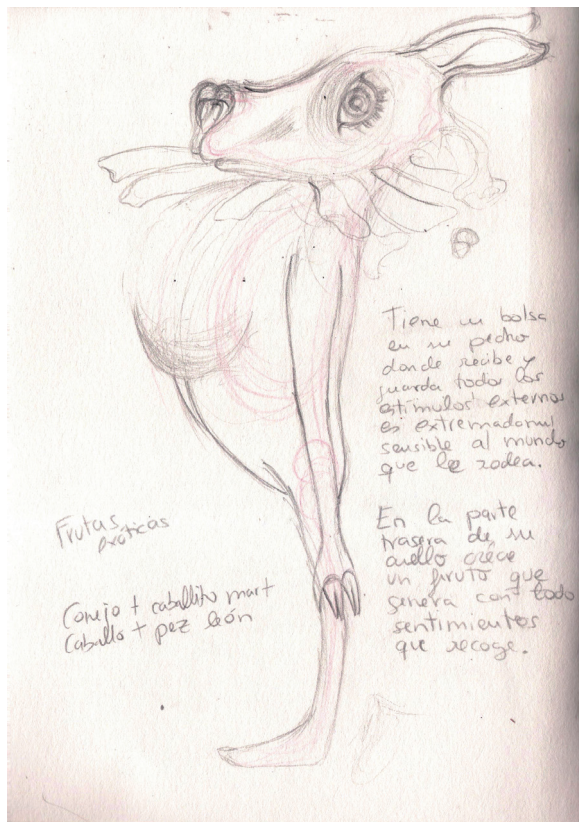 Tiene un bolsa
en su pecho
donde recibe y
guarda todos los
estímulos externos
es extremadam
sensible al mundo
que le rodea.
En la parte
trasera de su
cuello crece
un fruto que
genera con todo
sentimientos
que recoge.
Frutas
exóticas
Conejo + caballito mar +
Caballo + pez león